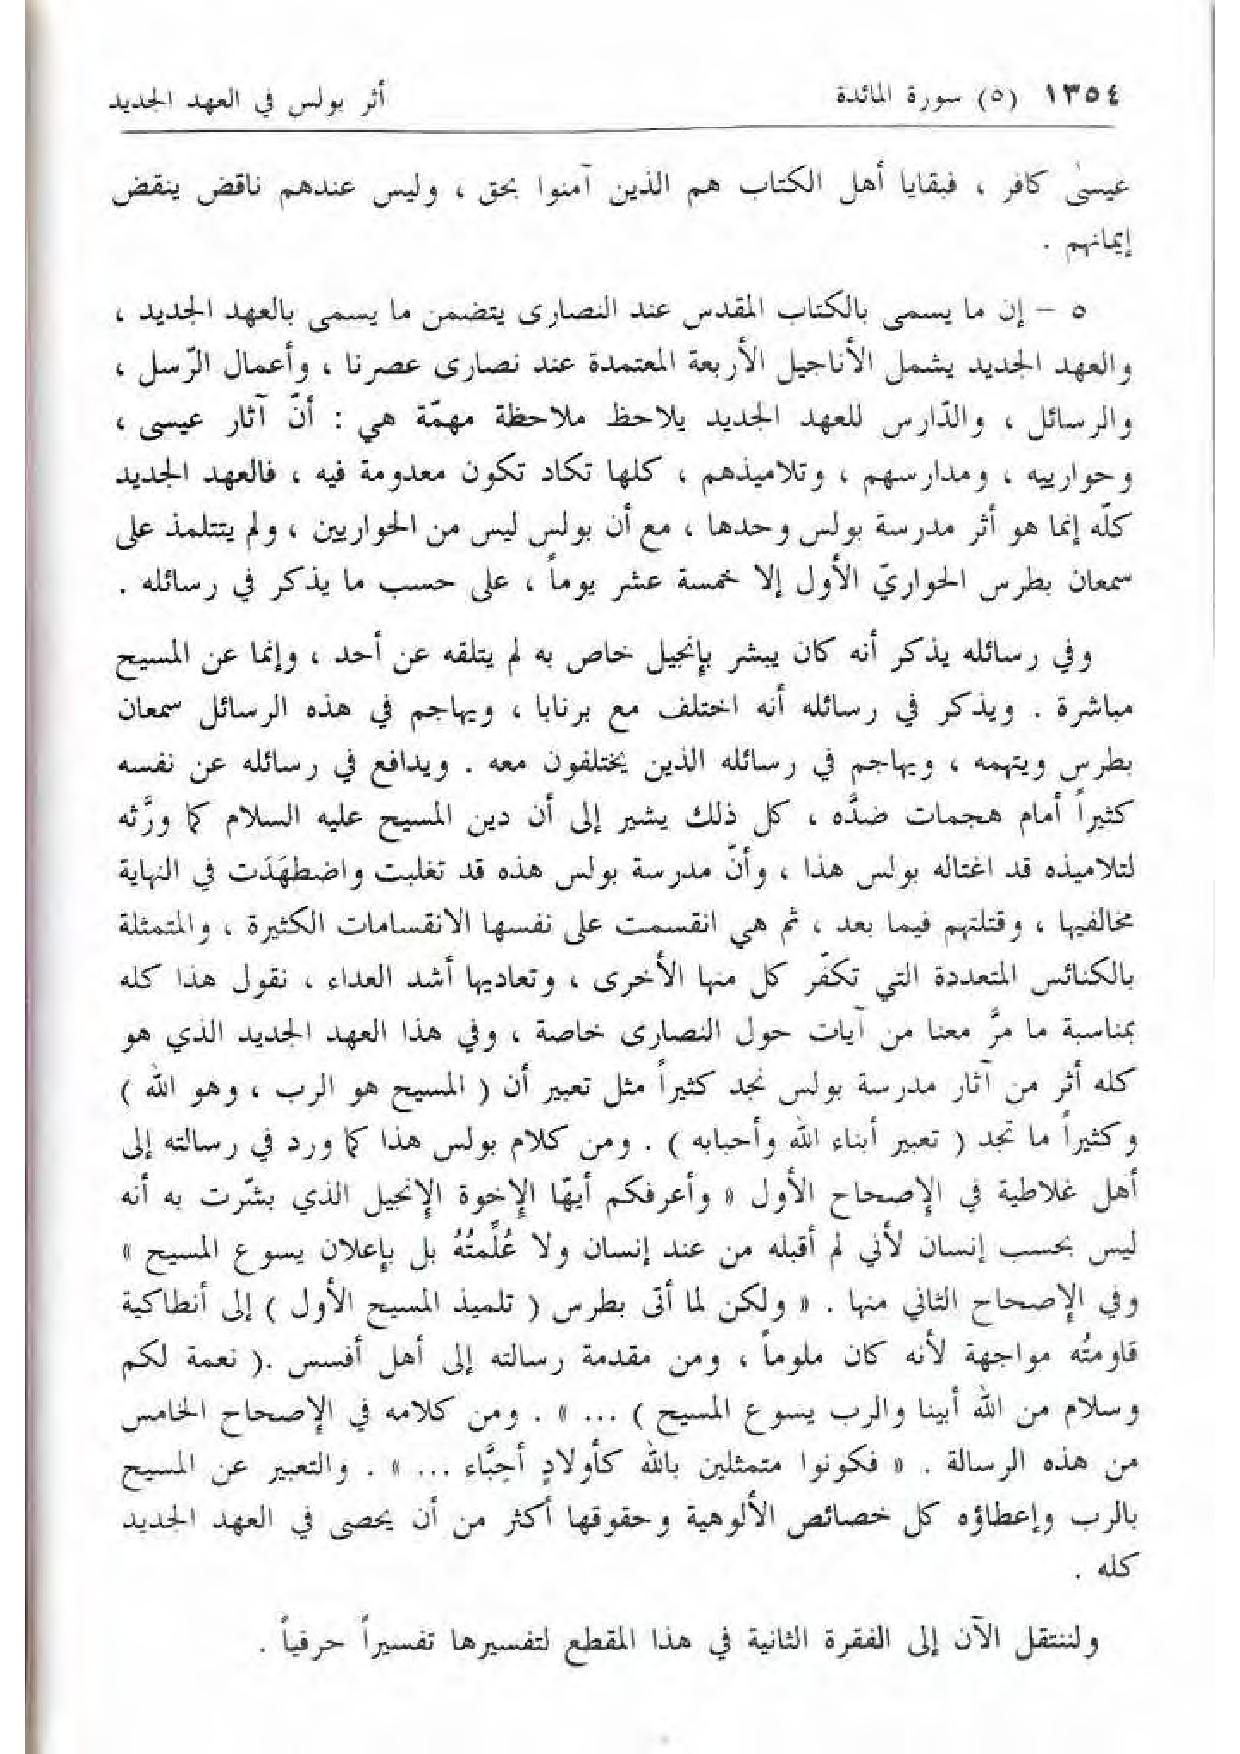 ١٣٥٤ (٥) سورة المائدة أثر بولس في العهد الجديد
عيسىٰ كافر ، فبقايا أهل الكتاب هم الذين آمنوا بحق ، وليس عندهم ناقض ينقض
إيمانهم .
٥ – إن ما يسمى بالكتاب المقدس عند النصارى يتضمن ما يسمى بالعهد الجديد ،
والعهد الجديد يشمل الأناجيل الأربعة المعتمدة عند نصارى عصرنا ، وأعمال الرّسل ،
والرسائل ، والدّارس للعهد الجديد يلاحظ ملاحظة مهمّة هي : أنّ آثار عيسى ،
وحوارييه ، ومدارسهم ، وتلاميذهم ، كلها تكاد تكون معدومة فيه ، فالعهد الجديد
كلّه إنما هو أثر مدرسة بولس وحدها ، مع أن بولس ليس من الحواريين ، ولم يتتلمذ على
سمعان بطرس الحواريّ الأول إلا خمسة عشر يوماً ، على حسب ما يذكر في رسائله .
وفي رسائله يذكر أنه كان يبشر بإنجيل خاص به لم يتلقه عن أحد ، وإنما عن المسيح
مباشرة . ويذكر في رسائله أنه اختلف مع برنابا ، ويهاجم في هذه الرسائل سمعان
بطرس ويتهمه ، ويهاجم في رسائله الذين يختلفون معه . ويدافع في رسائله عن نفسه
كثيراً أمام هجمات ضدَّه ، كل ذلك يشير إلى أن دين المسيح عليه السلام كما ورَّثه
لتلاميذه قد اغتاله بولس هذا ، وأنّ مدرسة بولس هذه قد تغلبت واضطهَدَت في النهاية
مخالفيها ، وقتلتهم فيما بعد ، ثم هي انقسمت على نفسها الانقسامات الكثيرة ، والمتمثلة
بالكنائس المتعددة التي تكفّر كل منها الأخرى ، وتعاديها أشد العداء ، نقول هذا كله
بمناسبة ما مرَّ معنا من آيات حول النصارى خاصة ، وفي هذا العهد الجديد الذي هو
كله أثر من آثار مدرسة بولس نجد كثيراً مثل تعبير أن ( المسيح هو الرب ، وهو الله )
وكثيراً ما تجد ( تعبير أبناء الله وأحبابه ) . ومن كلام بولس هذا كما ورد في رسالته إلى
أهل غلاطية في الإصحاح الأول « وأعرفكم أيهّا الإخوة الإنجيل الذي بشّرت به أنه
ليس بحسب إنسان لأني لم أقبله من عند إنسان ولا عُلِّمتُهُ بل بإعلان يسوع المسيح »
وفي الإصحاح الثاني منها . « ولكن لما أتى بطرس ( تلميذ المسيح الأول ) إلى أنطاكية
قاومتُه مواجهة لأنه كان ملوماً ، ومن مقدمة رسالته إلى أهل أفسس .( نعمة لكم
وسلام من الله أبينا والرب يسوع المسيح ) ... » . ومن كلامه في الإصحاح الخامس
من هذه الرسالة . « فكونوا متمثلين بالله كأولادٍ أحِبَّاء ... » . والتعبير عن المسيح
بالرب وإعطاؤه كل خصائص الألوهية وحقوقها أكثر من أن يحصى في العهد الجديد
كله .
ولننتقل الآن إلى الفقرة الثانية في هذا المقطع لتفسيرها تفسيراً حرفياً .